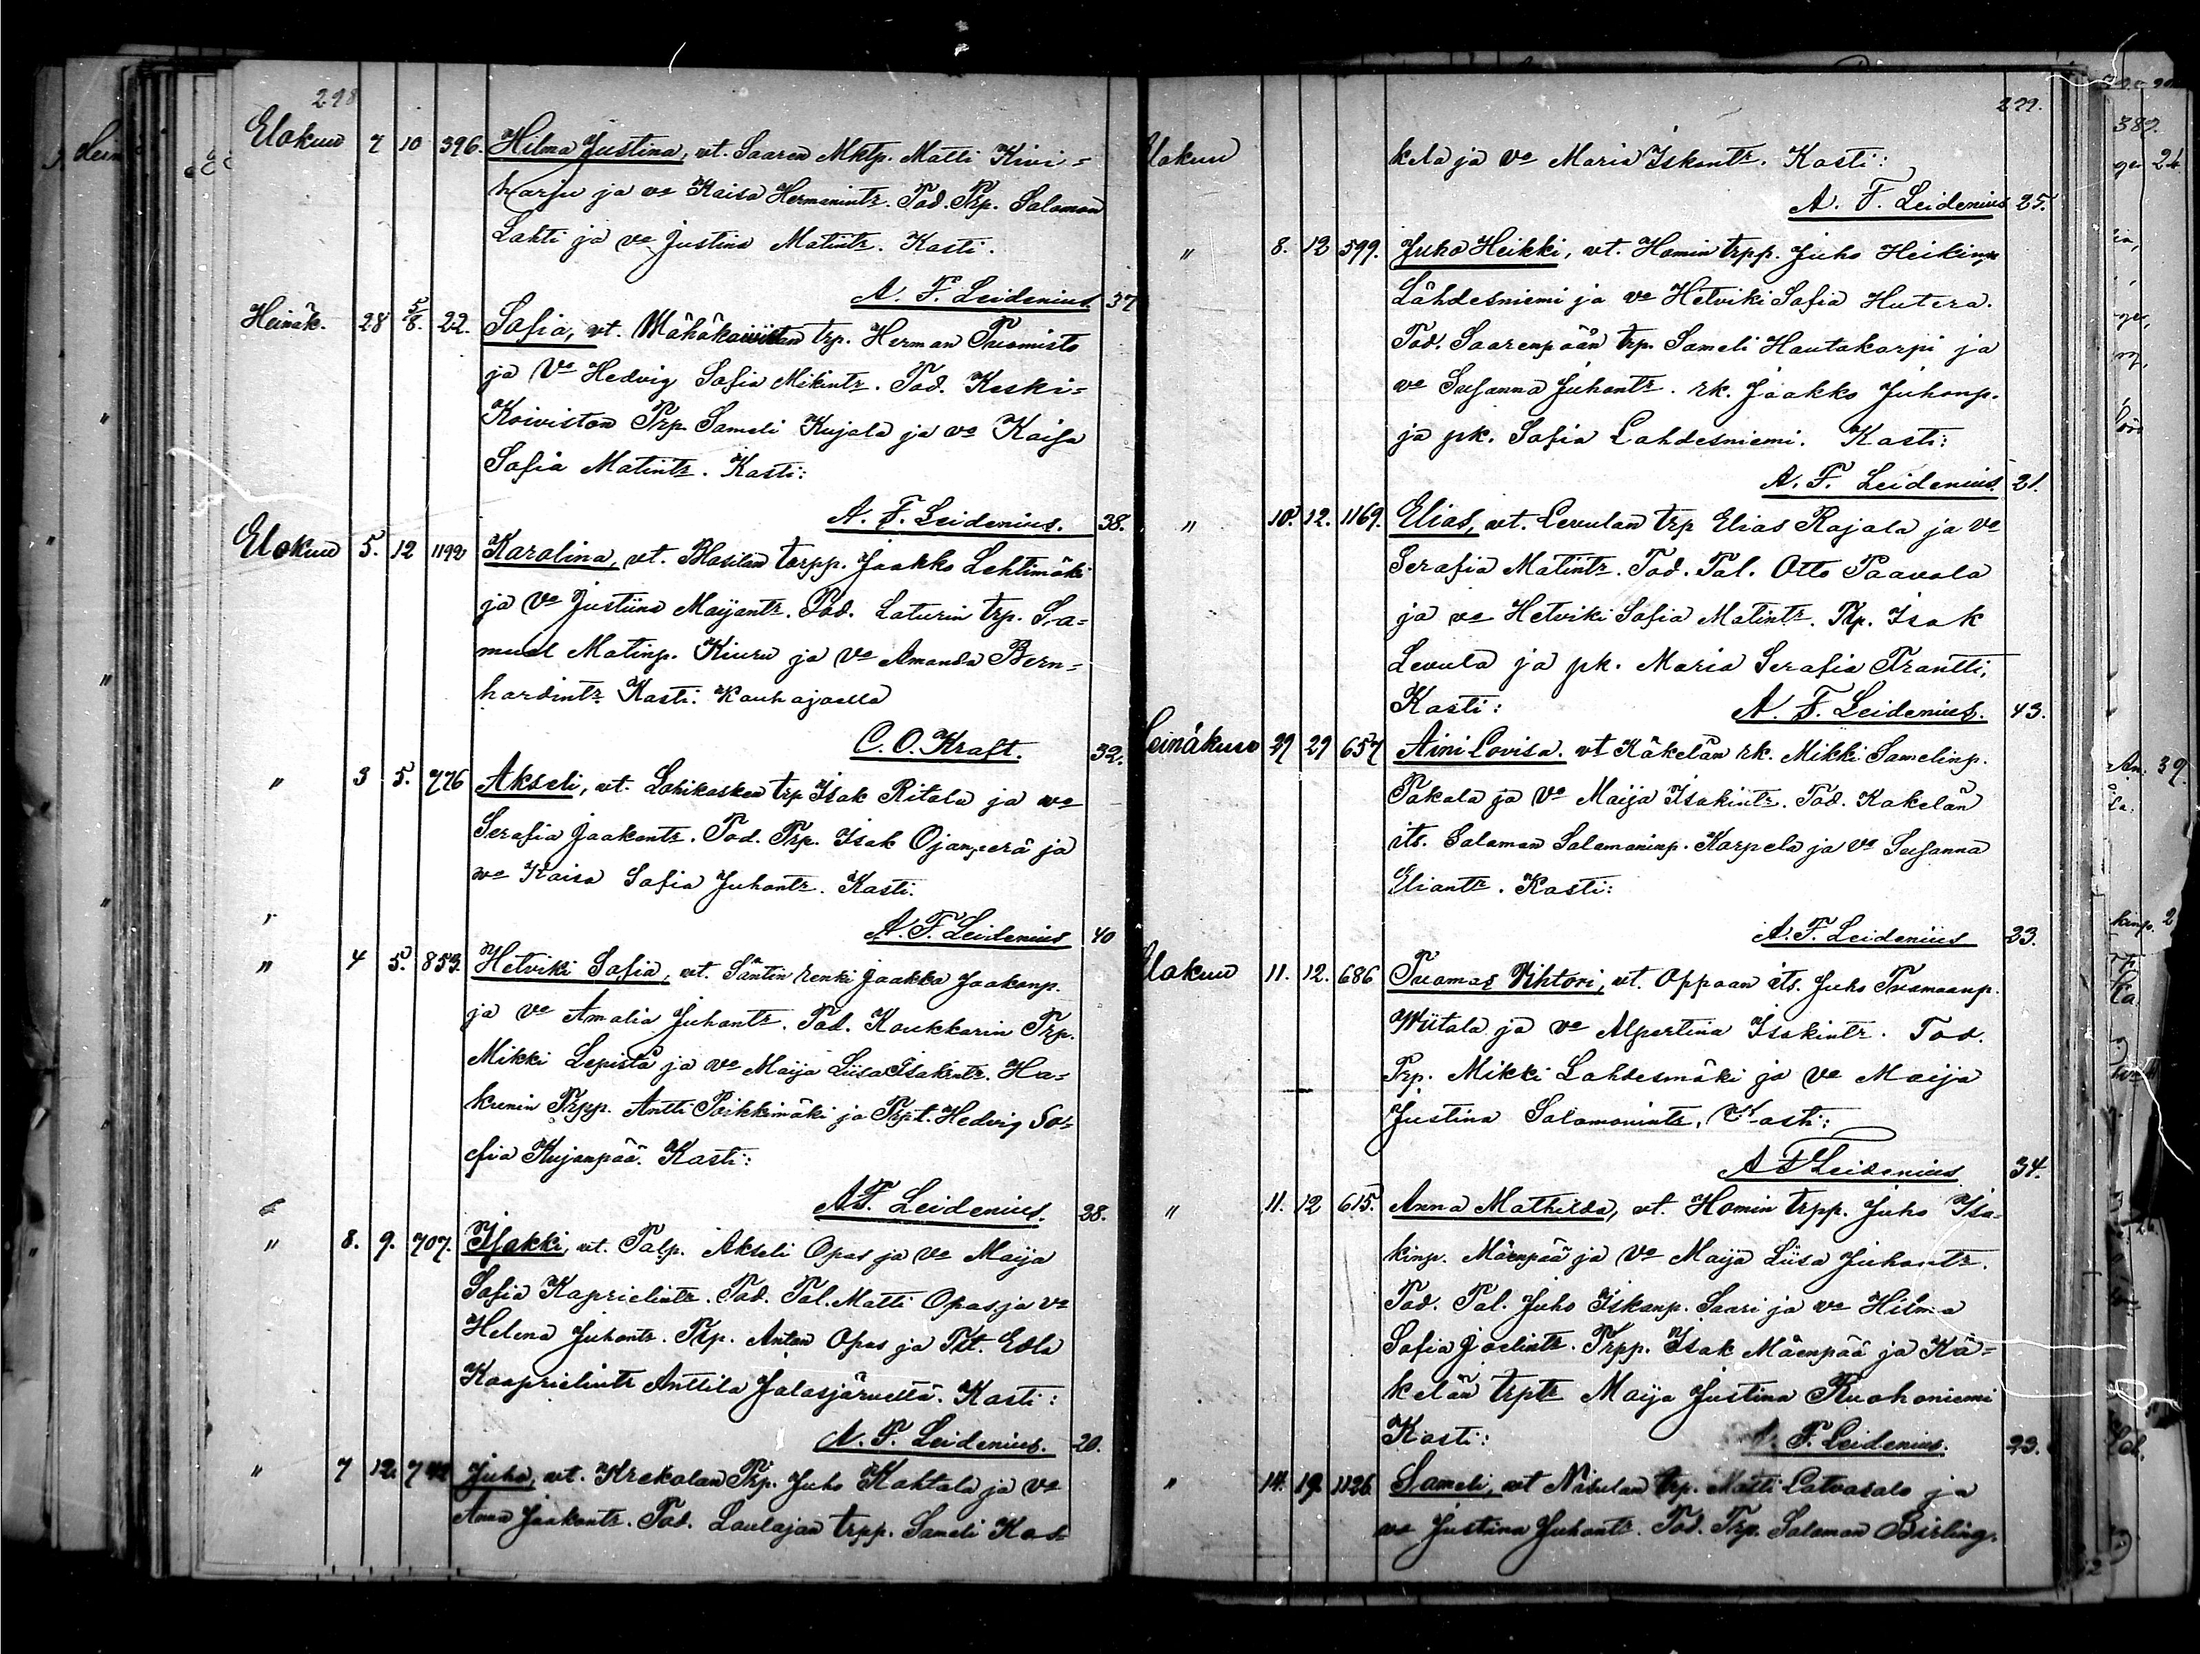 298
Elokuu 7 10 396. Hilma Justina, vt. Saaren Mktp. Matti Kivi=
harju ja vo Kaisa Hermanintr. Tod. Trp. Salomon
Lahti ja vo Justina Matintr. Kasti.
A. F. Leidenius. 37
Heinäk. 28 5/8. 22. Sofia, vt. trp. Herman Tuomisto
ja Vo Hedvig Sofia Mikintr. Tod. Keski=
Koiviston Trp. Sameli Kujala ja vo Kaisa
Sofia Matintr. Kasti:
A. F. Leidenius. 38.
Elokuu 5. 12 1192 Karolina, vt. torpp. Jaakko Lehtimäki
ja Vo Justiina Maijantr. Tod. Laturin trp. Sa=
muel Matinp. Kiuru ja Vo Amanda Bern=
hardintr. Kasti. Kauhajoella
C. O. Kraft. 32.
" 3 5. 776 Akseli, vt. Lohikosken trp Isak Ritala ja vo
Serafia Jaakontr. Tod. Trp. Isak Ojanperä ja
vo Kaisa Sofia Juhontr. Kasti.
A. F. Leidenius 40
" 4 5. 853. Hetviki Sofia, vt. Säntin renki Jaakko Jaakonp.
ja Vo Amalia Juhontr. Tod. Koukkarin Trp.
Mikki Lepistö ja Vo Maija Liisa Isakintr. Ha=
kunin Trpp. Antti Poikkimäki ja Trpt. Hedvig So=
fia Kujanpää. Kasti:
A. F. Leidenius. 28.
" 8. 9. 707. Isakki, vt. Palp. Akseli Opas ja Vo Maija
Sofia Kaprielintr. Tod. Tal. Matti Opas ja Vo
Helena Juhontr. Tlp. Anton Opas ja Tlt. Edla
Kaaprielintr Anttila Jalasjärveltä. Kasti:
A. F. Leidenius. 20.
" 7 12. Juho, vt. Krekolan Trp. Juho Kahtala ja Vo
Anna Jaakontr. Tod. Laulajan trpp. Sameli Kos=
299.
Elokuu kela ja Vo Maria Iskontr. Kasti:
A. F. Leidenius 25.
" 8. 12 599. Juho Heikki, vt. Homin trpp. Juho Heikinp
Lähdesniemi ja vo Hetviki Sofia Hutera.
Tod. Saarenpään trp. Sameli Hautakorpi ja
vo Susanna Juhontr. rk. Jaakko Juhonp.
ja pk. Sofia Lahdesniemi. Kasti:
A. F. Leidenius. 21.
" 10. 12. 1169. Elias, vt. Levulan trp Elias Rajala ja Vo
Serafia Matintr. Tod. Tal. Otto Paavola
ja vo Hetviki Sofia Matintr. Tlp. Isak
Levula ja pk. Maria Serafia Trantti.
Kasti: A. F. Leidenius. 43.
Heinäkuu 29 29 657 Aini Lovisa. vt Käkelän rk. Mikki Samelinp.
Pakala ja Vo Maija Isakintr. Tod. Kakelän
its. Salomon Salomoninp. Karpela ja Vo Susanna
Eliantr. Kasti:
A. F. Leidenius 23.
Elokuu 11. 12. 686 Tuomas Vihtori, vt. Oppaan its. Juho Tuomaanp.
Wiitala ja Vo Alpertina Isakintr. Tod.
Trp. Mikki Lahdesmäki ja Vo Maija
Justina Salomonintr. Kasti:
A F Leidenius 34.
" 11. 12 615. Anna Mathilda, vt. Homin trpp. Juho Isa=
kinp. Mäenpää ja Vo Maija Liisa Juhontr.
Tod. Tal. Juho Iskanp. Saari ja vo Hilma
Sofia Joelintr. Trpp. Isak Mäenpää ja Kä=
kelän trptr Maija Justina Ruohoniemi
Kasti: A. F. Leidenius. 23.
" 14. 19. 1126. Sameli, vt trp. Matti Latvasalo ja
vo Justina Juhontr. Tod. Trp. Salomon Birling.